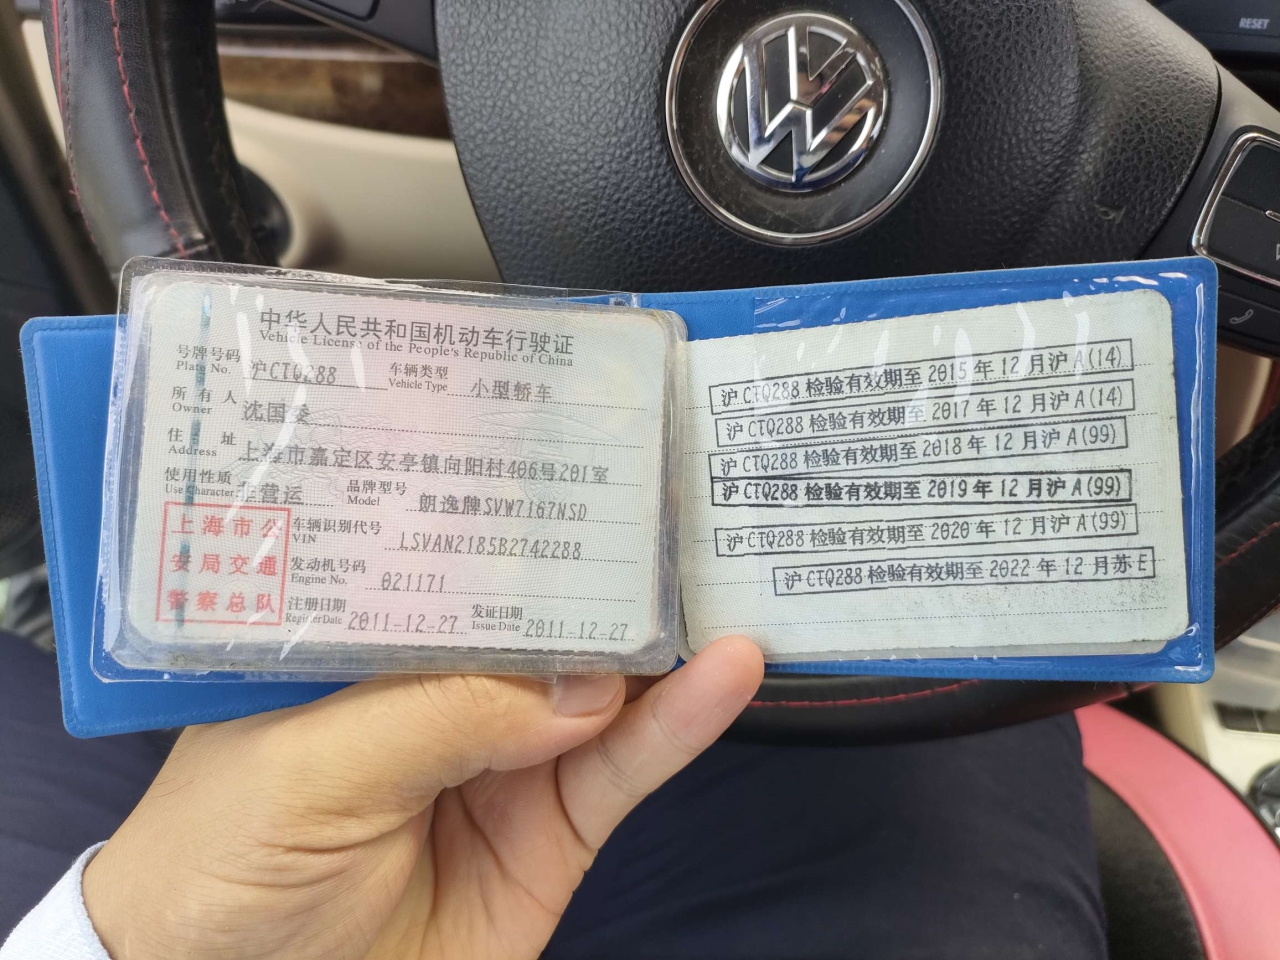 RESET
中华人民共和国机动车行驶证
Vehicle License of the People's Republic of China
号牌号码 沪CTQ288 车辆类型 小型轿车
Plate No. Vehicle Type
所有人 沈国
Owner
住址 上海市嘉定区安亭镇向阳村406号201室
Address
使用性质 非营运 品牌型号 朗逸牌SVW7167NSD
Use Character Model
车辆识别代号 LSVAN2185B2742288
VIN
发动机号码 021171
Engine No.
注册日期 2011-12-27 发证日期 2011-12-27
Register Date Issue Date
上海市公
安局交通
警察总队
沪CTQ288检验有效期至2015年12月沪A(14)
沪CTQ288检验有效期至2017年12月沪A(14)
沪CTQ288检验有效期至2018年12月沪A(99)
沪CTQ288检验有效期至2019年12月沪A(99)
沪CTQ288检验有效期至2020年12月沪A(99)
沪CTQ288检验有效期至2022年12月苏E